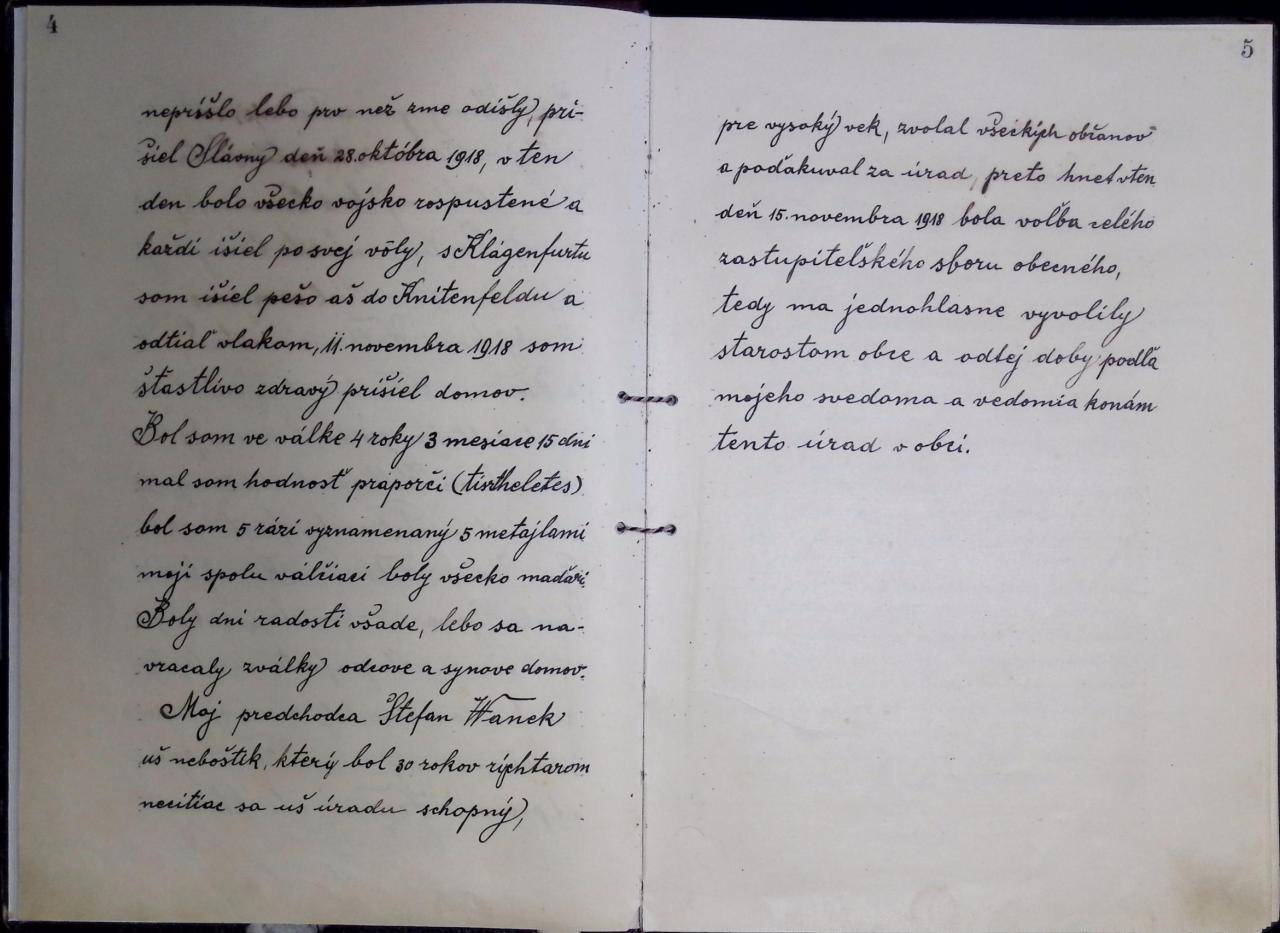 4
neprišlo lebo prv než zme odišly, pri-
šiel Slávny deň 28. októbra 1918, v ten
den bolo všecko vojsko rospustené a
každi išiel po svej vôly, s Klagenfurtu
som išiel pešo aš do Knitenfeldu a
odtiaľ vlakom, 11. novembra 1918 som
štastlivo zdravý prišiel domov.
Bol som ve válke 4 roky 3 mesiace 15 dni
mal som hodnosť práporči (tisztheletes)
bol som 5 rázi vyznamenaný 5 metajlami
moji spolu válčiaci boly všecko maďari.
Boly dni radosti všade, lebo sa na-
vracaly zválky odcove a synove domov.
Moj predchodca Štefan Wanek
uš neboštik, který bol 30 rokov richtarom
necitiac sa uš úradu schopný,
5
pre vysoký vek, zvolal všeckých občanov
a poďakuval za úrad, preto hneť vten
deň 15. novembra 1918 bola voľba celého
zastupiteľského sboru obecného,
tedy ma jednohlasne vyvolily
starostom obce a odtej doby podľa
mojeho svedoma a vedomia konám
tento úrad v obci.